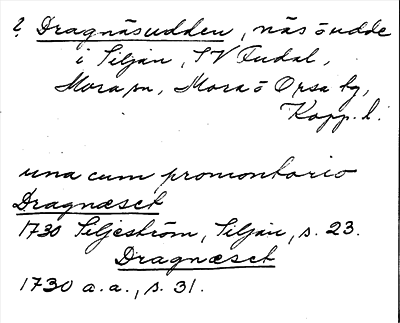 ? Dragnäsudden, näs o udde
i Siljan, SV Fudal,
Mora sn, Mora o Orsa tg,
Kopp. l.
una cum promontorio
Dragnæset
1730 Siljeström, Siljan, s. 23.
Dragnæset
1730 a.a., s. 31.